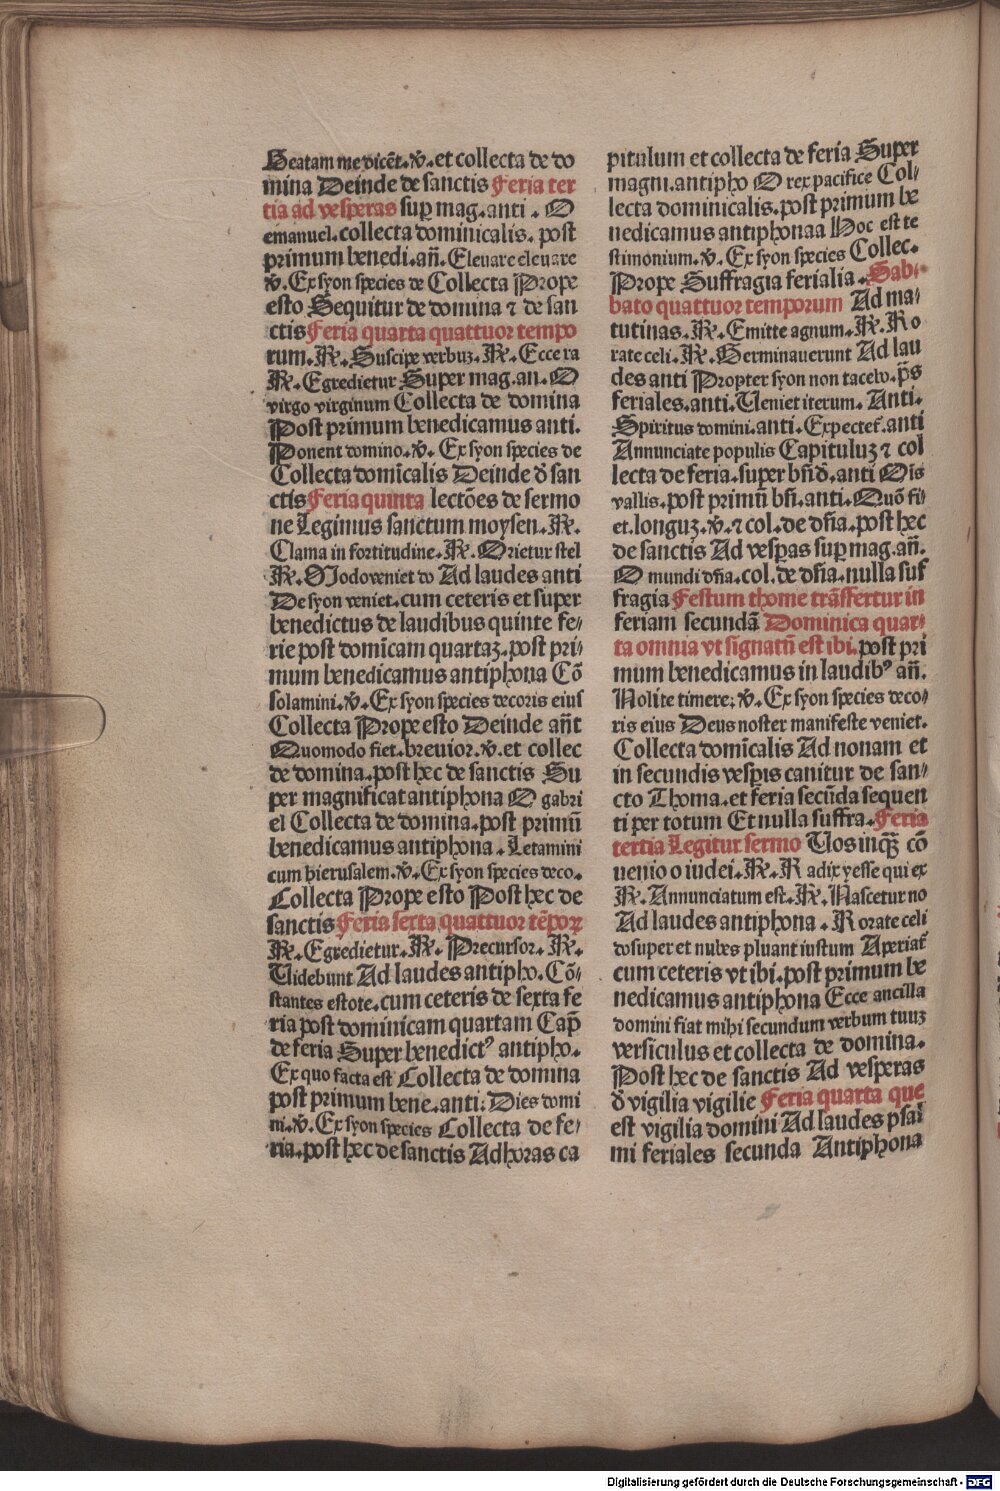 Beatam me dicēt. v̄. et collecta de do
mina Deinde de sanctis Feria ter
tia ad vesperas sup mag. anti. O
emanuel. collecta dominicalis. post
primum benedi. añ. Elevare elevare
v̄. Ex syon species de Collecta Prope
esto Sequitur de domina ⁊ de san
ctis Feria quarta quattuor tempo
rum. R̄. Suscipe verbuꝫ. R̄. Ecce ra
R̄. Egredietur Super mag. an. O
virgo virginum Collecta de domina
Post primum benedicamus anti.
Ponent domino. v̄. Ex syon species de
Collecta domīcalis Deinde d̄ san
ctis Feria quinta lectōes de sermo
ne Legimus sanctum moysen. R̄.
Clama in fortitudine. R̄. Orietur stel
R̄. Modo veniet do Ad laudes anti
De syon veniet. cum ceteris et super
benedictus de laudibus quinte fe/
rie post domīcam quartaꝫ. post pri/
mum benedicamus antiphona Cō
solamini. v̄. Ex syon species decoris eius
Collecta Prope esto Deinde añt
Quomodo fiet. brevior. v̄. et collec
de domina. post hec de sanctis Su
per magnificat antiphona O gabri
el Collecta de domina. post primū
benedicamus antiphona. Letamini
cum hierusalem. v̄. Ex syon species deco.
Collecta Prope esto Post hec de
sanctis Feria sexta quattuor tēpoꝝ
R̄. Egredietur. R̄. Precursor. R̄.
Videbunt Ad laudes antipho. Cō/
stantes estote. cum ceteris de sexta fe
ria post dominicam quartam Cap̄
de feria Super benedictꝰ antipho.
Ex quo facta est Collecta de domina
post primum bene. anti: Dies domi
ni. v̄. Ex syon species Collecta de fe/
ria. post hec de sanctis Ad horas ca
pitulum et collecta de feria Super
magni. antipho O rex pacifice Col/
lecta dominicalis. post primum be
nedicamus antiphonaa Hoc est te
stimonium. v̄. Ex syon species Collec.
Prope Suffragia ferialia. Sab/
bato quattuor temporum Ad ma/
tutinas. R̄. Emitte agnum. R̄. Ro
rate celi. R̄. Germinaverunt Ad lau
des anti Propter syon non tacebo. p̄s
feriales. anti. Veniet iterum. Anti.
Spiritus domini. anti. Expectet̄. anti
Annunciate populis Capituluꝫ ⁊ col
lecta de feria. super bn̄d̄. anti Oīs
vallis. post primū bn̄. anti. Quō fi/
et. longuꝫ. v̄. ⁊ col. de dn̄a. post hec
de sanctis Ad vesp̄as sup mag. añ.
O mundi dn̄a. col. de dn̄a. nulla suf
fragia Festum thome trāsfertur in
feriam secundā Dominica quar/
ta omnia vt signatū est ibi. post pri
mum benedicamus in laudibꝰ añ.
Nolite timere: v̄. Ex syon species deco/
ris eius Deus noster manifeste veniet.
Collecta domīcalis Ad nonam et
in secundis vesp̄is canitur de san/
cto Thoma. et feria secūda sequen
ti per totum Et nulla suffra. Feria
tertia Legitur sermo Vos inqꝫ cō
uenio o iudei. R̄. Radix yesse qui ex
R̄. Annunciatum est. R̄. Nascetur no
Ad laudes antiphona. Rorate celi
desuper et nubes pluant iustum Aperiat̄
cum ceteris vt ibi. post primum be
nedicamus antiphona Ecce ancilla
domini fiat mihi secundum verbum tuuꝫ
versiculus et collecta de domina.
Post hec de sanctis Ad vesperas
d̄ vigilia vigilie Feria quarta que
est vigilia domini Ad laudes psal
mi feriales secunda Antiphona
Digitalisierung gefördert durch die Deutsche Forschungsgemeinschaft - DFG